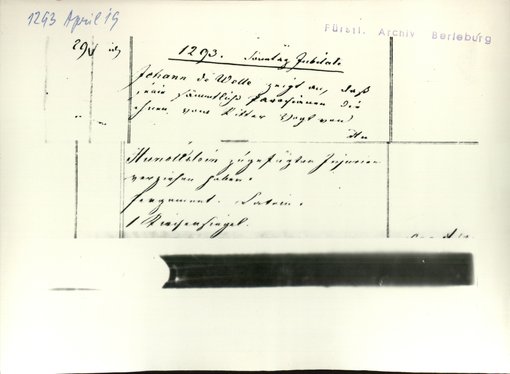 1293 April 19
Fürstl. Archiv Berleburg
29
1293. Sonntag Jubilate
Johann de Wolle zeigt an, daß
sämmtliche Parochianen die
ihnen vom Ritter Vogt von
Hu
Hunoltstein zugefügten Injurien
verziehen haben.
Pergament. Latein.
1 Kirchensiegel.